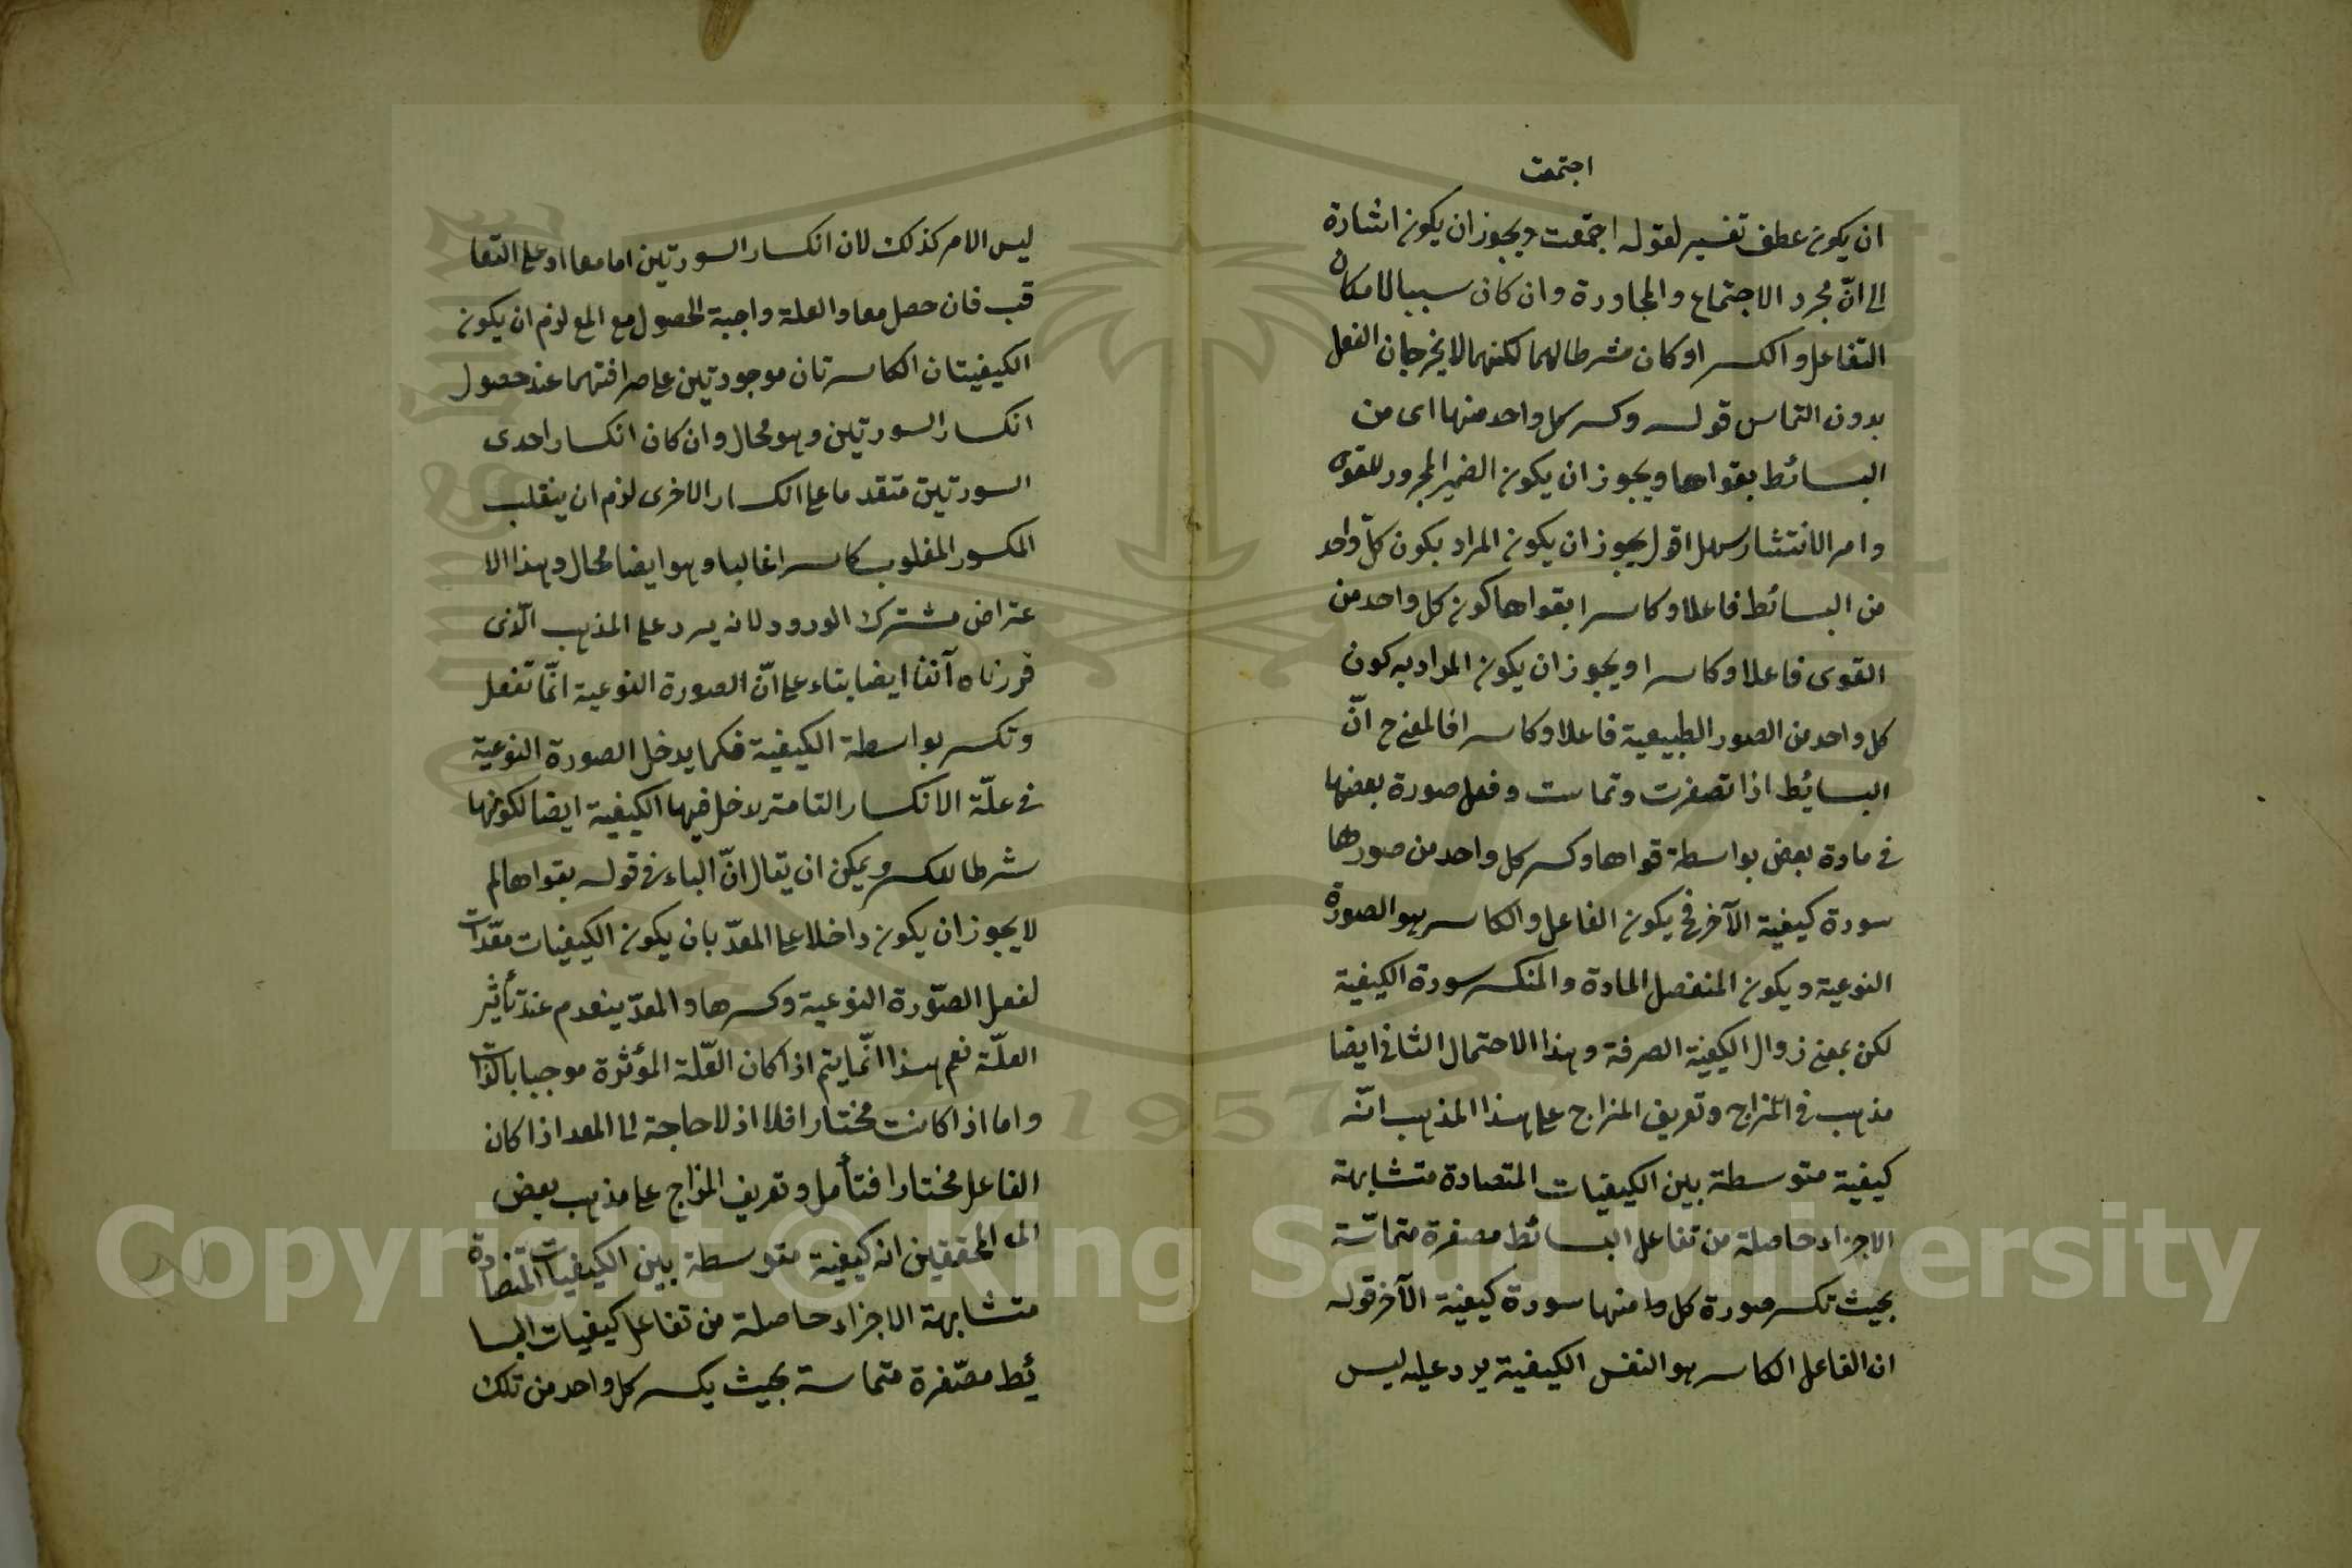 اجتمعت
ان يكون عطف تفسير لقوله اجتمعت ويجوز ان يكون اشارة
الى انّ مجرد الاجتماع والمجاورة وان كان سببا لامكان
التفاعل والكسر او كان شرطا لهما لكنهما لا يخرجان الفعل
بدون التماس قوله وكسر كل واحد منها اى من
البسائط بقواها ويجوز ان يكون الضمير المجرور للقوى
وامر الانتشار سهل اقول يجوز ان يكون المراد بكون كلّ واحد
من البسائط فاعلا وكاسرا بقواها كون كل واحد من
القوى فاعلا وكاسرا ويجوز ان يكون المراد به كون
كل واحد من الصور الطبيعية فاعلا وكاسرا فالمعنى ح انّ
البسائط اذا تصغرت وتماست وفعل صورة بعضها
فى مادة بعض بواسطة قواها وكسر كل واحد من صورها
سورة كيفية الآخر فح يكون الفاعل والكاسر هو الصورة
النوعية ويكون المنفصل المادة والمنكسر سورة الكيفية
لكن بمعنى زوال الكيفية الصرفة وهذا الاحتمال الثانى ايضا
مذهب فى المزاج وتعريف المزاج على هذا المذهب انّه
كيفية متوسطة بين الكيفيات المتضادة متشابهة
الاجزاء حاصلة من تفاعل البسائط مصغرة متماسّة
بحيث تكسر صورة كل منها سورة كيفية الآخر قوله
ان الفاعل الكاسر هو النفس الكيفية يرد عليه ليس
ليس الامر كذلك لان انكسار السورتين اما معا او على التعا
قب فان حصل معا والعلة واجبة الحصول مع المع لزم ان يكون
الكيفيتان الكاسرتان موجودتين على صرافتهما عند حصول
انكسار السورتين وهو محال وان كان انكسار احدى
السورتين متقدما على انكسار الاخرى لزم ان ينقلب
المكسور المغلوب كاسرا غالبا وهو ايضا محال وهذا الا
عتراض مشترك الورود لانه يرد على المذهب الّذى
قررناه آنفا ايضا بناء على انّ الصورة النوعية انّما تفعل
وتكسر بواسطة الكيفية فكما يدخل الصورة النوعية
فى علّة الانكسار التامة يدخل فيها الكيفية ايضا لكونها
شرطا للكسر ويمكن ان يقال انّ الباء فى قوله بقواها لم
لا يجوز ان يكون داخلا على المعدّ بان يكون الكيفيات معّدات
لفعل الصّورة النوعية وكسرها والمعدّ ينعدم عند تأثير
العلّة نعم هذا انّما يتم اذا كان العّلة المؤثرة موجبا بالذات
واما اذا كانت مختارا فلا اذ لا حاجة الى المعد اذا كان
الفاعل مختارا فتأمل وتعريف المزاج على مذهب بعض
المحققين انه كيفية متوسطة بين الكيفيات المتضادة
متشابهة الاجزاء حاصلة من تفاعل كيفيات البسا
ئط مصّغرة متماسة بحيث يكسر كل واحد من تلك
1957
Copyright © King Saud University